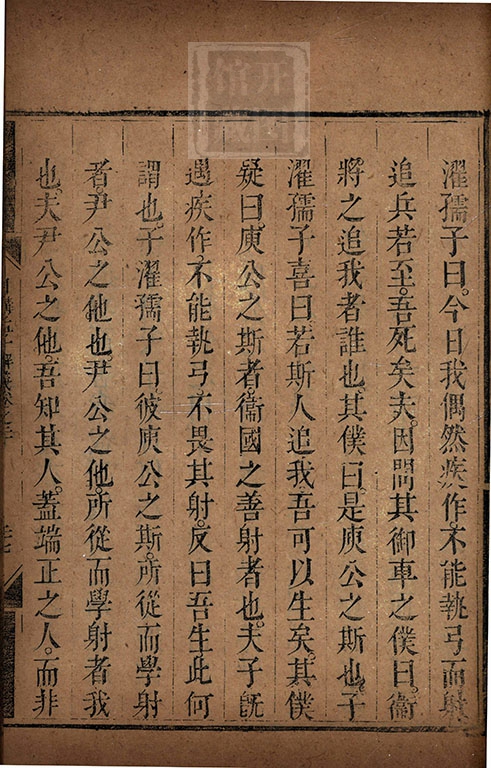 濯孺子曰。今日我偶然疾作。不能執弓而射
追兵若至。吾死矣夫。因問其御車之僕曰。衞
將之追我者誰也。其僕曰。是庾公之斯也。子
濯孺子喜曰若斯人追我吾可以生矣。其僕
疑曰。庾公之斯者。衞國之善射者也。夫子旣
遇疾作。不能執弓。不畏其射。反曰吾生此何
謂也。子濯孺子曰。彼庾公之斯。所從而學射
者。尹公之他也。尹公之他。所從而學射者我
也。夫尹公之他。吾知其人。蓋端正之人。而非